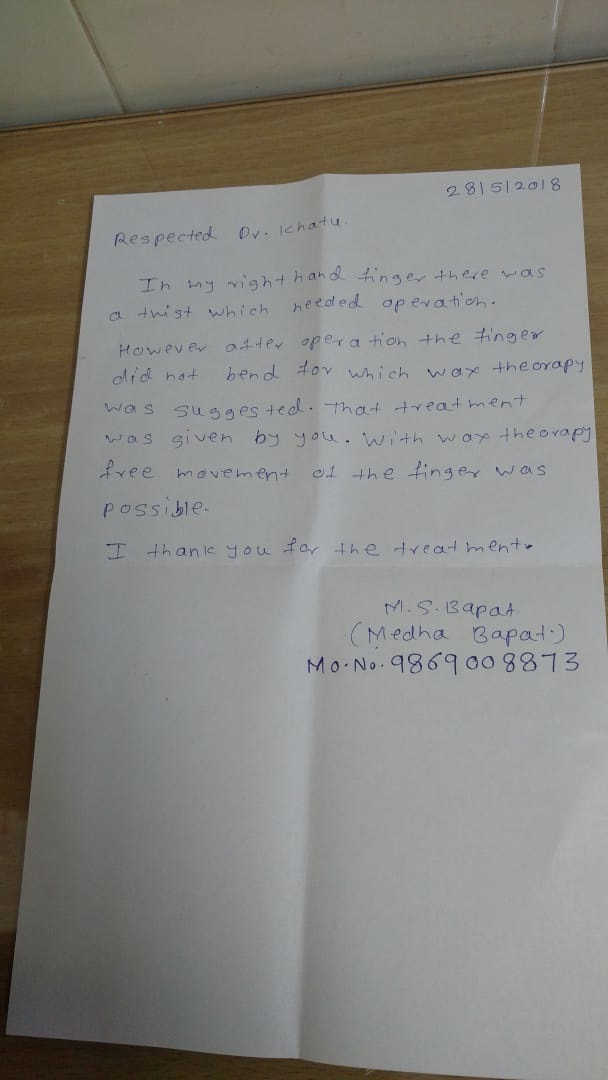 28/5/2018
Respected Dr. Khatu.
In my right hand finger there was
a twist which needed operation.
However after operation the finger
did not bend for which wax theorapy
was suggested. That treatment
was given by you. With wax theorapy
free movement of the finger was
possible.
I thank you for the treatment.
M.S.Bapat.
(Medha Bapat.)
Mo.No.9869008873